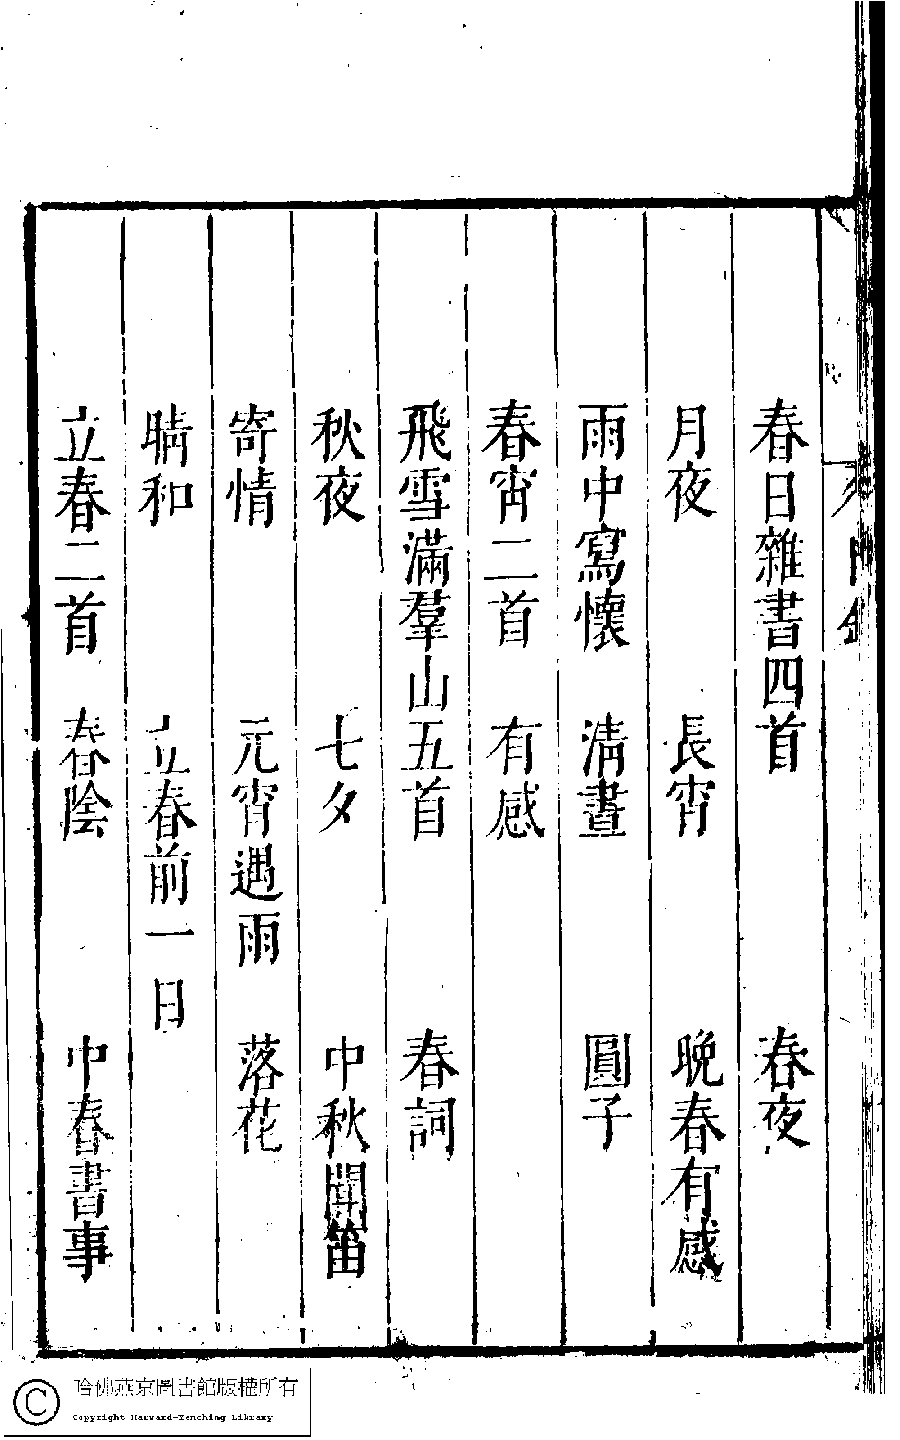 春日雜書四首　春夜
月夜　長宵　晚春有感
雨中寫懷　清晝　圓子
春宵二首　有感
飛雪滿羣山五首　春詞
秋夜　七夕　中秋聞笛
寄情　元宵遇雨　落花
晴和　立春前一日
立春二首　春陰　中春書事
哈佛燕京圖書館版權所有
Copyright Harvard-Yenching Library